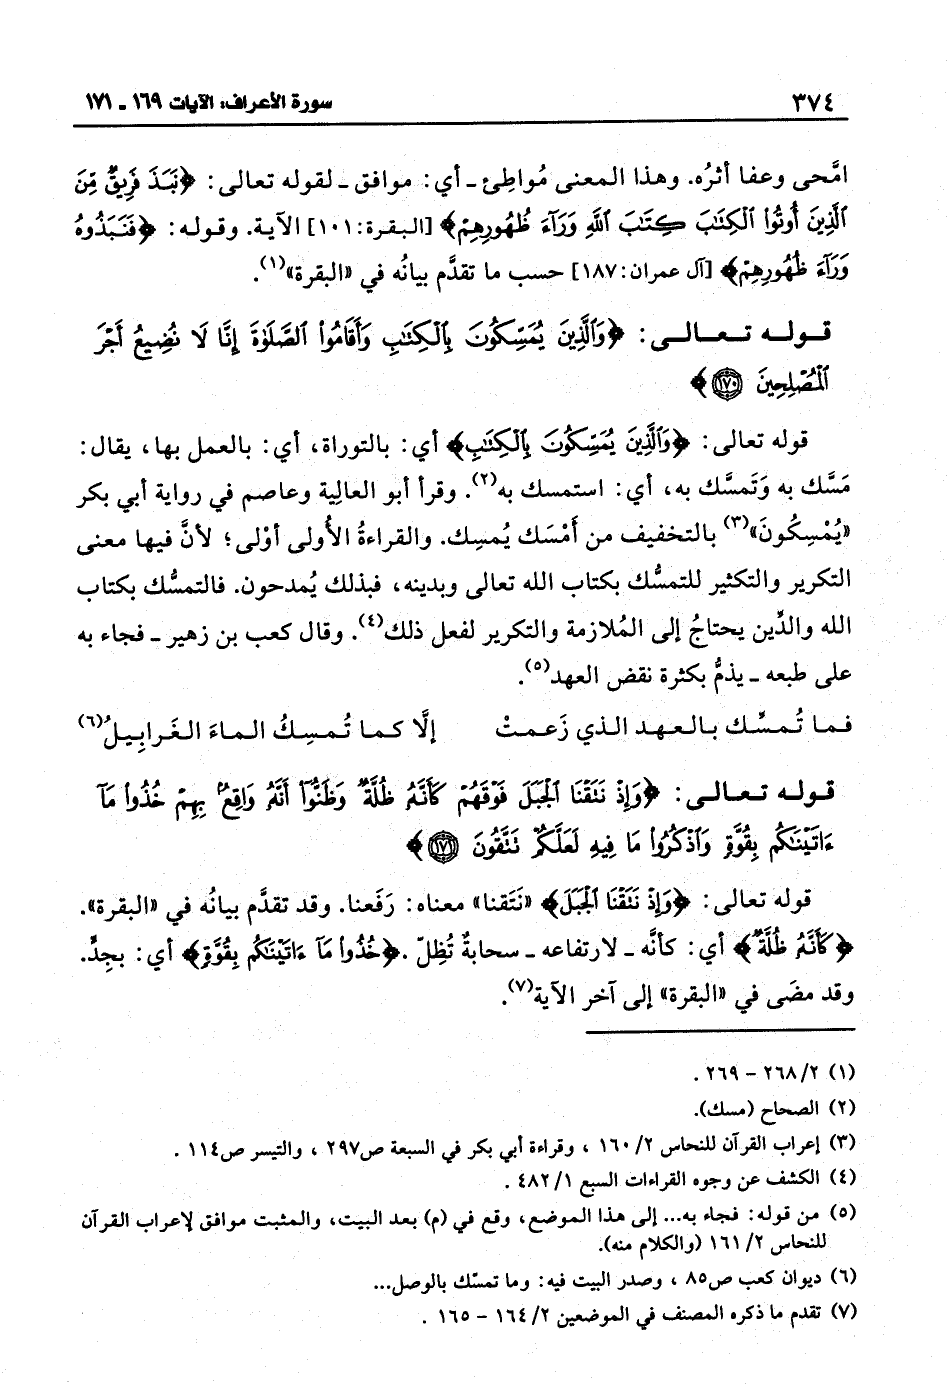 ٣٧٤
سورة الأعراف: الآيات ١٦٩ ـ ١٧١
امَّحى وعفا أثرُه. وهذا المعنى مُواطِئ ـ أي: موافق ـ لقوله تعالى: ﴿نَبَذَ فَرِيقٌ مِّنَ
ٱلَّذِينَ أُوتُوا۟ ٱلْكِتَٰبَ كِتَٰبَ ٱللَّهِ وَرَآءَ ظُهُورِهِمْ﴾ [البقرة: ١٠١] الآية. وقوله: ﴿فَنَبَذُوهُ
وَرَآءَ ظُهُورِهِمْ﴾ [آل عمران: ١٨٧] حسب ما تقدَّم بيانُه في «البقرة»(١).
قوله تعالى: ﴿وَٱلَّذِينَ يُمَسِّكُونَ بِٱلْكِتَٰبِ وَأَقَامُوا۟ ٱلصَّلَوٰةَ إِنَّا لَا نُضِيعُ أَجْرَ
ٱلْمُصْلِحِينَ ١٧٠﴾
قوله تعالى: ﴿وَٱلَّذِينَ يُمَسِّكُونَ بِٱلْكِتَٰبِ﴾ أي: بالتوراة، أي: بالعمل بها، يقال:
مَسَّك به وَتَمسَّك به، أي: استمسك به(٢). وقرأ أبو العالية وعاصم في رواية أبي بكر
«يُمْسِكُونَ»(٣) بالتخفيف من أَمْسَك يُمسِك. والقراءةُ الأُولى أوْلى؛ لأنَّ فيها معنى
التكرير والتكثير للتمسُّك بكتاب الله تعالى وبدينه، فبذلك يُمدحون. فالتمسُّك بكتاب
الله والدِّين يحتاجُ إلى المُلازمة والتكرير لفعل ذلك(٤). وقال كعب بن زهير ـ فجاء به
على طبعه ـ يذمُّ بكثرة نقض العهد(٥).
فما تُمسِّك بالعهد الذي زَعمتْ إلَّا كما تُمسِكُ الماءَ الغَرابِيلُ(٦)
قوله تعالى: ﴿وَإِذْ نَتَقْنَا ٱلْجَبَلَ فَوْقَهُمْ كَأَنَّهُۥ ظُلَّةٌ وَظَنُّوٓا۟ أَنَّهُۥ وَاقِعٌۢ بِهِمْ خُذُوا۟ مَآ
ءَاتَيْنَٰكُم بِقُوَّةٍ وَٱذْكُرُوا۟ مَا فِيهِ لَعَلَّكُمْ تَتَّقُونَ ١٧١﴾
قوله تعالى: ﴿وَإِذْ نَتَقْنَا ٱلْجَبَلَ﴾ «نَتَقنا» معناه: رَفَعنا. وقد تقدَّم بيانُه في «البقرة».
﴿كَأَنَّهُۥ ظُلَّةٌ﴾ أي: كأنَّه ـ لارتفاعه ـ سحابةٌ تُظِلّ. ﴿خُذُوا۟ مَآ ءَاتَيْنَٰكُم بِقُوَّةٍ﴾ أي: بجِدٍّ.
وقد مضَى في «البقرة» إلى آخر الآية(٧).
(١) ٢/ ٢٦٨ - ٢٦٩ .
(٢) الصحاح (مسك).
(٣) إعراب القرآن للنحاس ٢/ ١٦٠ ، وقراءة أبي بكر في السبعة ص٢٩٧ ، والتيسر ص١١٤ .
(٤) الكشف عن وجوه القراءات السبع ١/ ٤٨٢ .
(٥) من قوله: فجاء به... إلى هذا الموضع، وقع في (م) بعد البيت، والمثبت موافق لإعراب القرآن
للنحاس ٢/ ١٦١ (والكلام منه).
(٦) ديوان كعب ص٨٥ ، وصدر البيت فيه: وما تمسّك بالوصل...
(٧) تقدم ما ذكره المصنف في الموضعين ٢/ ١٦٤ - ١٦٥ .